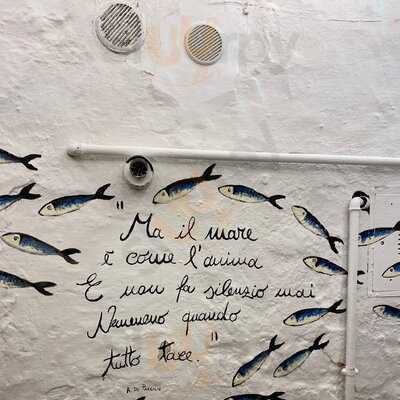 " Ma il mare
è come l'anima
E non fa silenzio mai
Nemmeno quando
tutto tace."